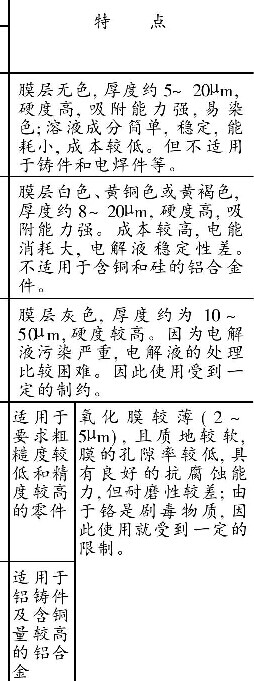 特 点
膜层无色,厚度约5~ 20μm,
硬度高,吸附能力强,易染
色;溶液成分简单,稳定,能
耗小,成本较低。但不适用
于铸件和电焊件等。
膜层白色、黄铜色或黄褐色,
厚度约8~ 20μm,硬度高,吸
附能力强。成本较高,电能
消耗大,电解液稳定性差。
不适用于含铜和硅的铝合金
件。
膜层灰色,厚度约为 10 ~
50μm,硬度较高。因为电解
液污染严重,电解液的处理
比较困难。因此使用受到一
定的制约。
适用于
要求粗
糙度较
低和精
度较高
的零件
氧化膜较薄(2 ~
5μm),且质地较软,
膜的孔隙率较低,具
有良好的抗腐蚀能
力,但耐磨性较差;由
于铬是剧毒物质,因
此使用就受到一定的
限制。
适用于
铝铸件
及含铜
量较高
的铝合
金